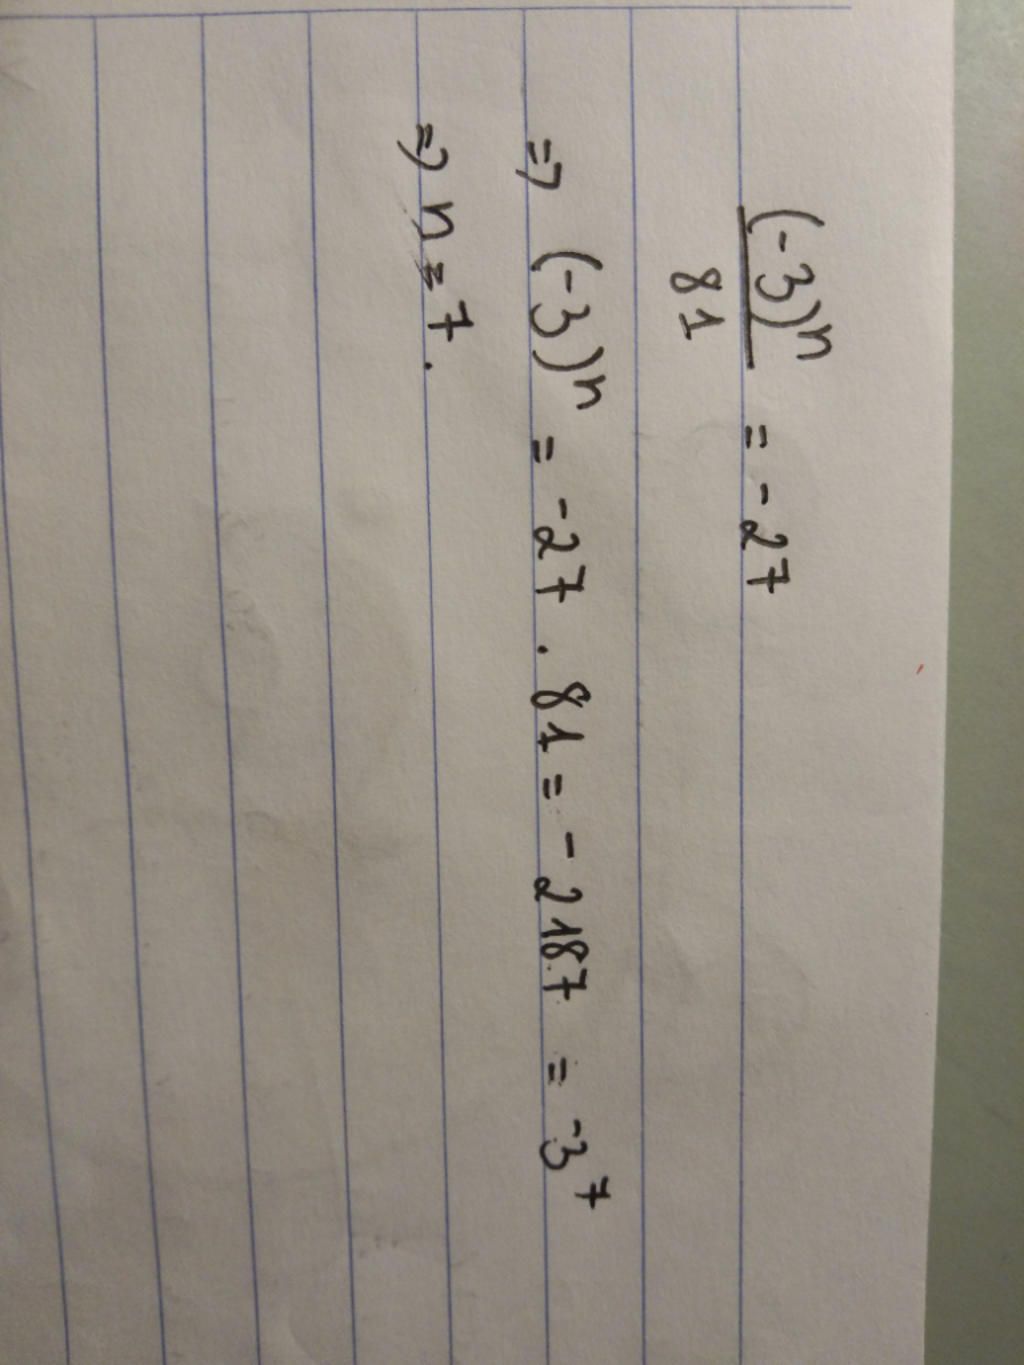 (-3)ⁿ
81 = -27
=> (-3)ⁿ = -27 . 81 = - 2187 = -3⁷
=> n = 7.